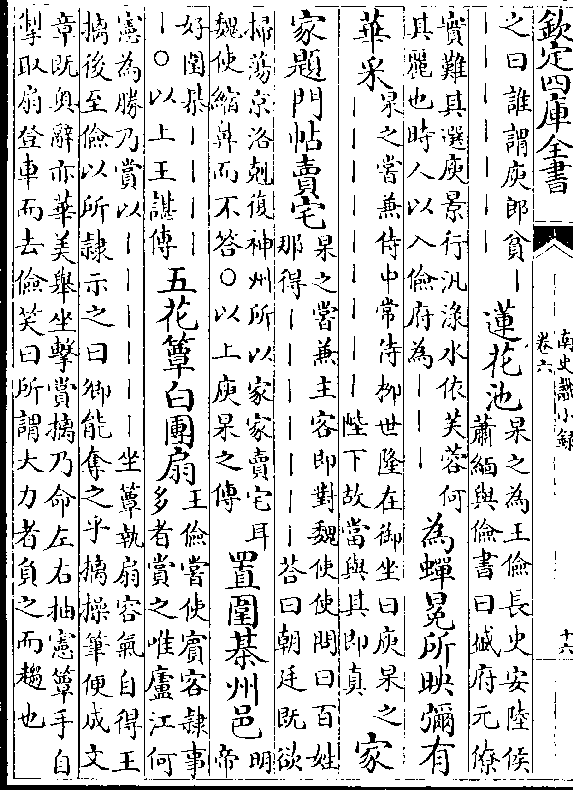 欽定四庫全書
南史識小錄
卷六
十六
之曰誰謂庾郎貧｜
｜｜｜｜｜｜
蓮花池
杲之為王儉長史安陸侯
蕭緬與儉書曰盛府元僚
實難其選庾景行汎淥水依芙蓉何
其麗也時人以入儉府為｜｜｜
為蟬冕所映彌有
華采
杲之嘗兼侍中常侍柳世隆在御坐曰庾杲之
｜｜｜｜｜｜｜｜陛下故當與其即真
家
家題門帖賣宅
杲之嘗兼主客即對魏使使問曰百姓
那得｜｜｜｜｜｜荅曰朝廷既欲
掃蕩京洛剋復神州所以家家賣宅耳
魏使縮鼻而不答○以上庾杲之傳
置圍棊州邑
明
帝
好圍棊｜｜｜｜
｜○以上王諶傳
五花簟白團扇
王儉嘗使賓客隸事
多者賞之唯廬江何
憲為勝乃賞以｜｜｜｜｜｜坐簟執扇容氣自得王
摛後至儉以所隸示之曰卿能奪之乎摛操筆便成文
章既奥辭亦華美舉坐擊賞摛乃命左右抽憲簟手自
掣取扇登車而去儉笑曰所謂大力者負之而趨也